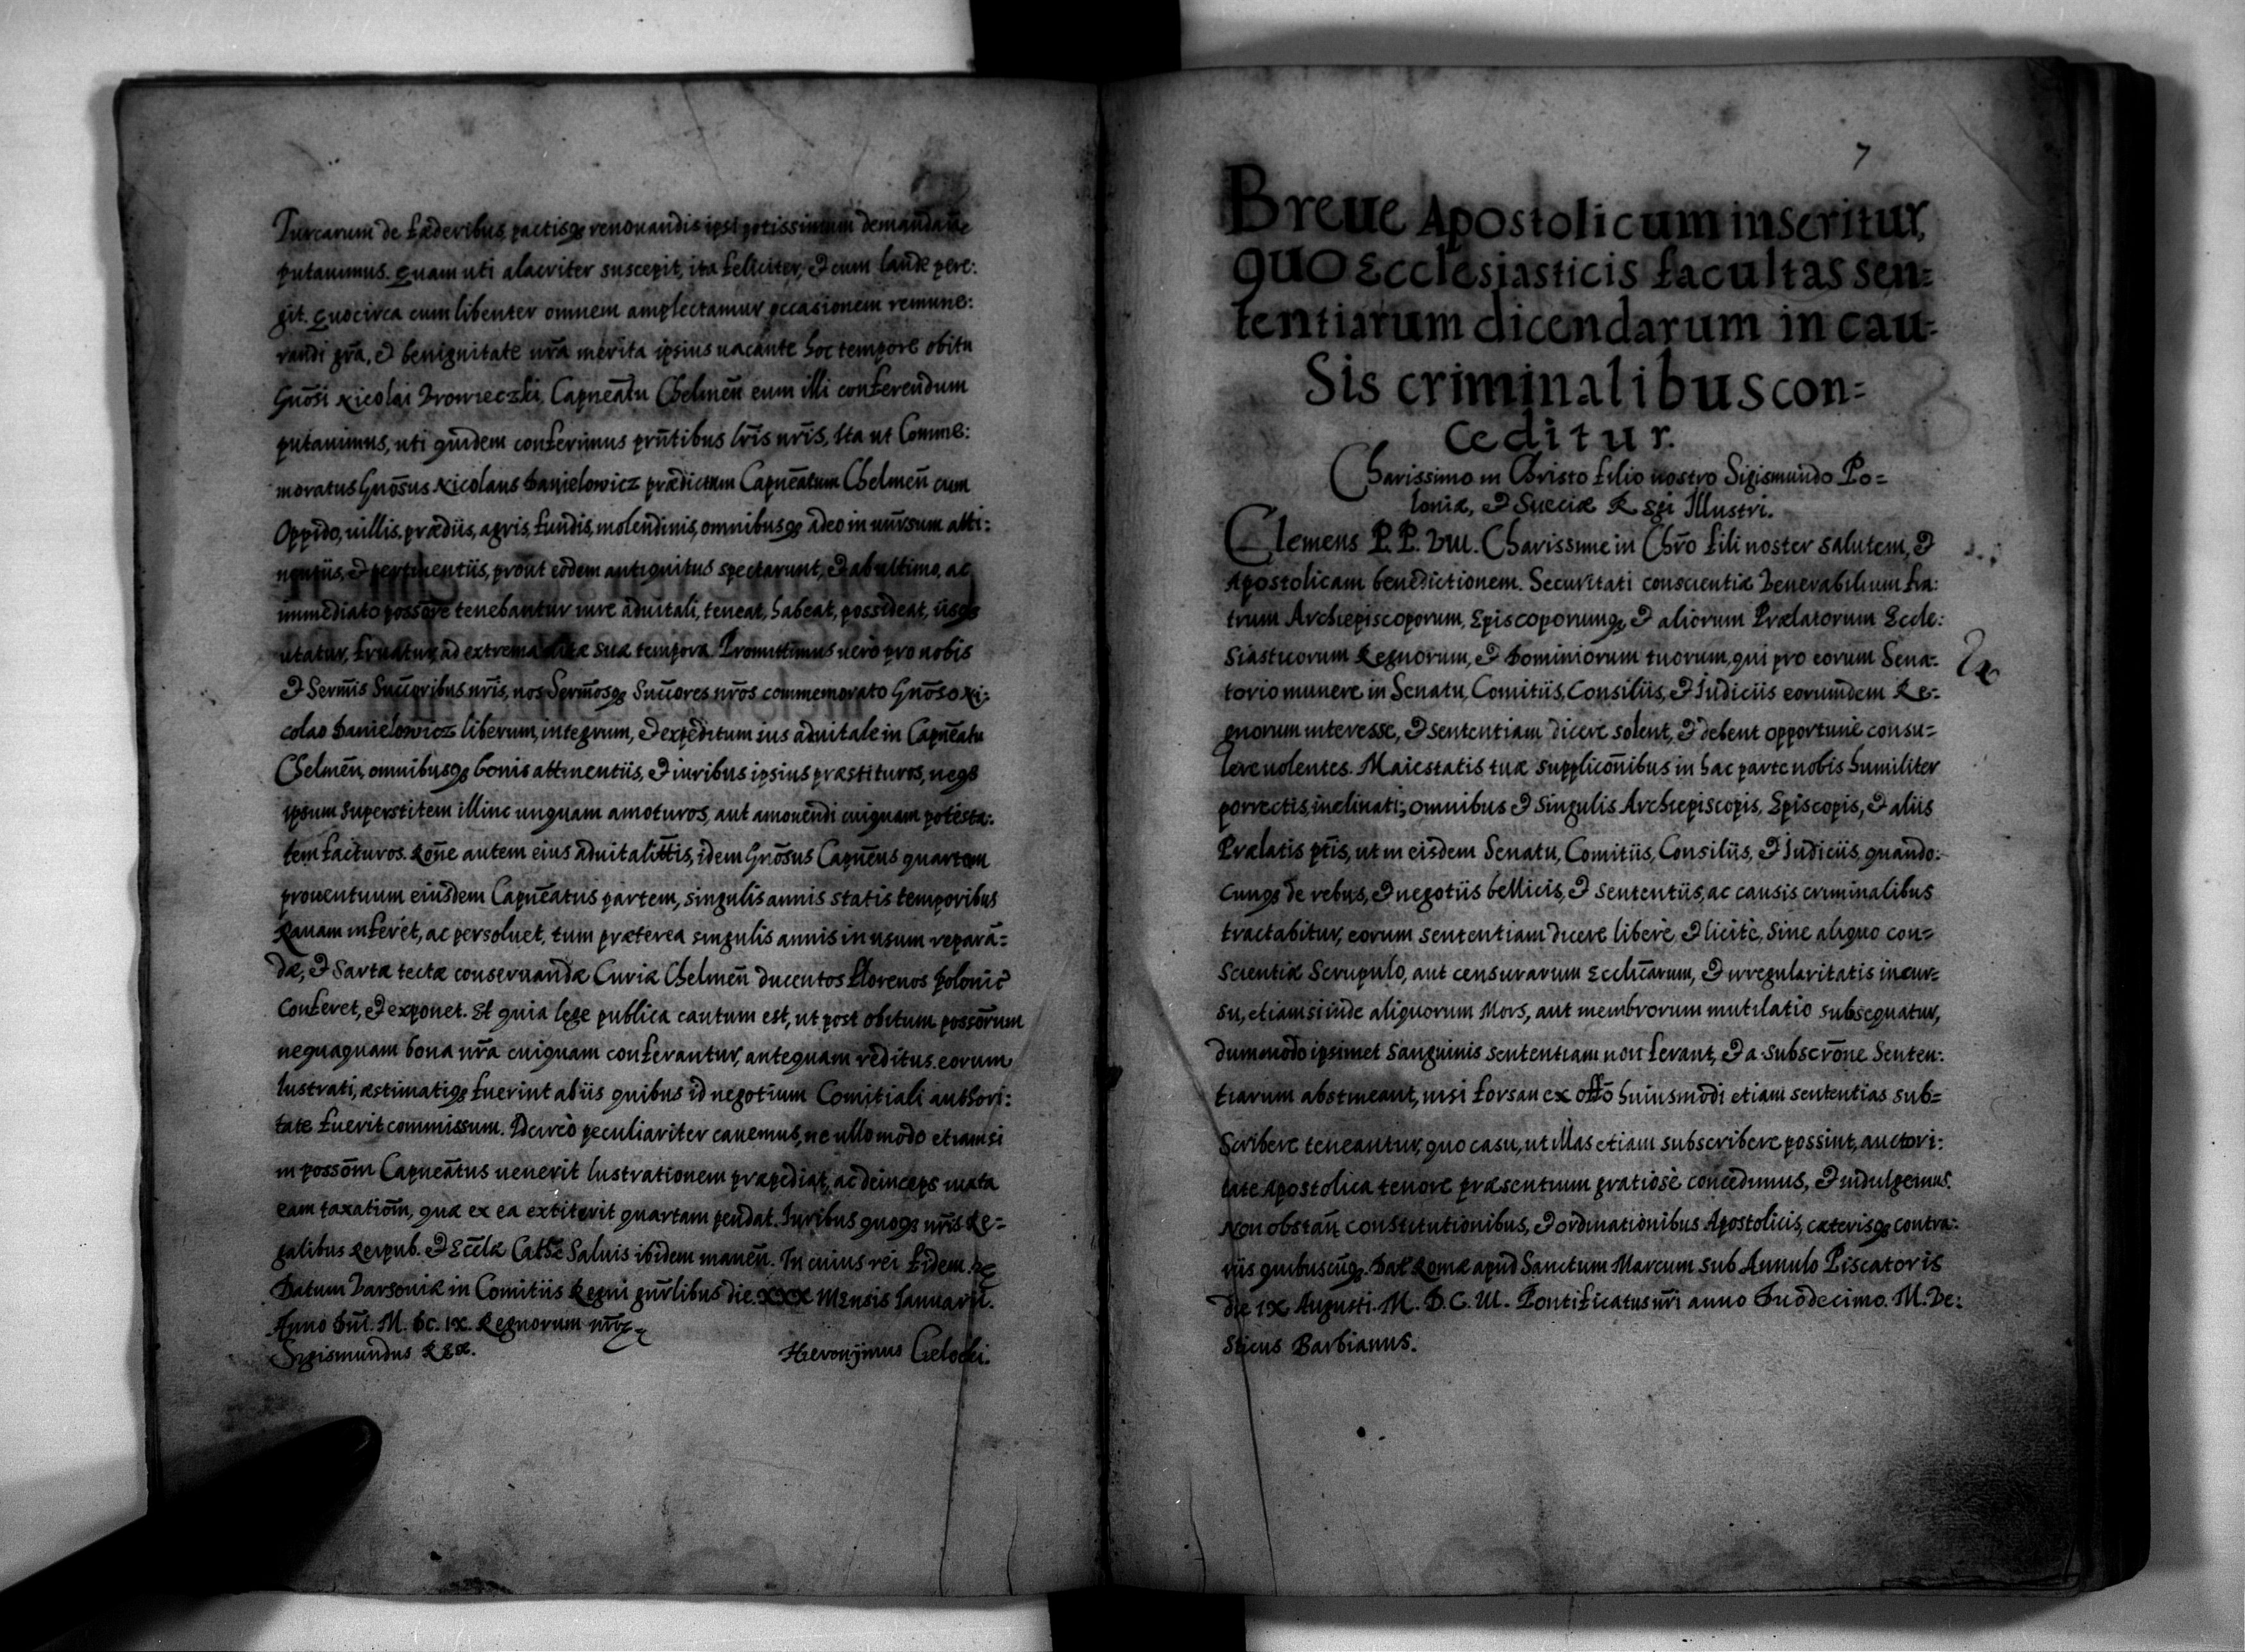 Turcarum de fæderibus pactisq3 renouandis ipsi potissimum demandare
putauimus. Quam uti alacriter suscepit, ita feliciter, & cum laude pere:
git. Quocirca cum libenter omnem amplectamur occasionem remune:
randi gra, & benignitate nra merita ipsius uacante hoc tempore obitu
Gnosi Nicolai Vrowieczki, Capneatu Chelmen eum illi conferendum
putauimus, uti quidem conferimus prntibus lris nris, Ita ut Comme:
moratus Gnosus Nicolaus Danielowicz prædictum Capneatum Chelmen cum
Oppido, uillis, prædiis, agris, fundis, molendinis, omnibusq3 adeo in uniuersum atti:
nentiis, & pertinentiis, prout eodem antiquitus spectarunt, & ab ultimo, ac
immediato possore tenebantur iure aduitali, teneat, habeat, possideat,
utatur, fruatur, ad extrema uitæ suæ tempora. Promittimus uerò pro nobis
& Sermis Succoribus nris, nos Sermosq3 Succores nros commemorato Gnoso Ni:
colao Danielowicz liberum, integrum, & expeditum ius aduitale in Capneatu
Chelmen, omnibusq3 bonis attinentiis, & iuribus ipsius præstituros, neq3
ipsum superstitem illinc unquam amoturos, aut amouendi cuiquam potesta:
tem facturos. Rone autem eius aduitalittis, idem Gnosus Capneus quartam
prouentuum eiusdem Capneatus partem, singulis annis statis temporibus
Rauam inferet, ac persoluet, tum præterea singulis annis in usum repara=
dæ, & Sarta tecta conseruandæ Curiæ Chelmen ducentos florenos polonic
Conferet, & exponet. Et quia lege publica cautum est, ut post obitum possorum
nequaquam bona nra cuiquam conferantur, antequam reditus eorum
lustrati, æstimatiq3 fuerint ab iis quibus id negotium Comitiali authori:
tate fuerit commissum. Idcircò peculiariter cauemus, ne ullo modo etiamsi
in possom Capneatus uenerit lustrationem præpediat, ac deinceps iuxta
eam taxationem, quæ ex ea extiterit quartam pendat. Iuribus quoq3 nris Re=
galibus Reipub. & Eccla Cathc Saluis ibidem manen. In cuius rei fidem
Datum Varsouiæ in Comitiis Regni gnrlibus die. XXX Mensis Ianuarii.
Anno Dni. M. Dc. IX. Regnorum nror
Sigismundus Rex. Hieronymus Cielecki.
7
Breue Apostolicum inseritur,
quo Ecclesiasticis facultas sen=
tentiarum dicendarum in cau=
Sis criminalibus con=
ceditur.
Charissimo in Christo filio nostro Sigismundo Po=
loniæ, & Sueciæ Regi Illustri.
Clemens P. P. VIII. Charissime in Chro fili noster salutem, &
Apostolicam benedictionem. Securitati conscientiæ Venerabilium fra:
trum Archiepiscoporum, Episcoporumq3, & aliorum Prælatorum Eccle:
siasticorum Regnorum, & Dominiorum tuorum, qui pro eorum Sena:
torio munere in Senatu, Comitiis, Consiliis, & Iudiciis eorumdem Re=
gnorum interesse, & sententiam dicere solent, & debent opportunè consu=
lere uolentes. Maiestatis tuæ supplicõnibus in hac parte nobis humiliter
porrectis, inclinati; omnibus & singulis Archiepiscopis, Episcopis, & aliis
Prælatis ptis, ut in eisdem Senatu, Comitiis, Consiliis, & Iudiciis, quando:
cunq3 de rebus, & negotiis bellicis, & sententiis, ac causis criminalibus
tractabitur, eorum sententiam dicere liberè, & licitè, sine aliquo con=
scientiæ Scrupulo, aut censurarum Ecclicarum, & irregularitatis incur=
su, etiamsi inde aliquorum Mors, aut membrorum mutilatio subsequatur,
dummodo ipsimet Sanguinis sententiam non ferant, & a subscrone Senten:
tiarum abstineant, nisi forsan ex offo huiusmodi etiam sententias sub=
scribere teneantur, quo casu, ut illas etiam subscribere possint, auctori:
tate Apostolica tenore præsentium gratiosè concedimus, & indulgemus.
Non obstan constitutionibus, & ordinationibus Apostolicis, cæterisq3 contra:
riis quibuscuq3. Dat Romæ apud Sanctum Marcum sub Annulo Piscatoris
die IX Augusti. M. D. C. III. Pontificatus nri anno Duodecimo. M. Ve:
stius Barbianus.